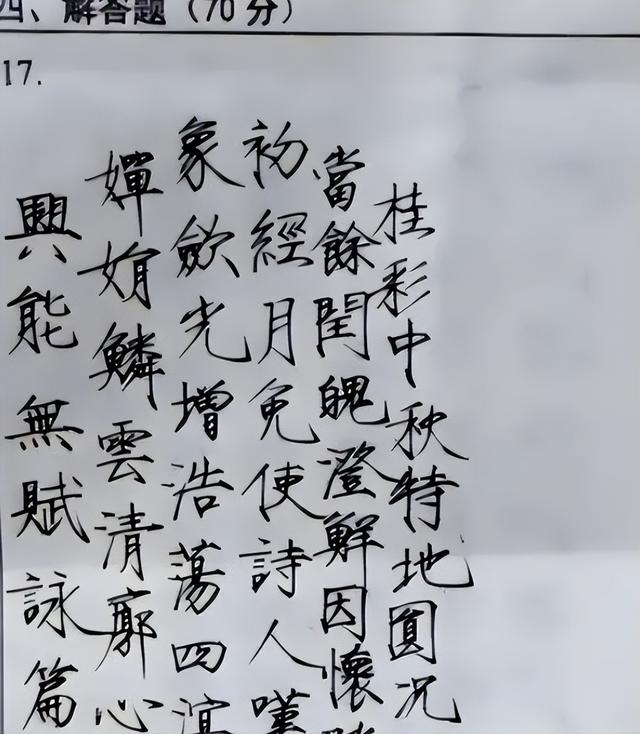 四、解答题（70分）
17.
桂彩中秋特地圓况
當餘閏魄澄鮮因懷
初經月免使詩人嘆
象斂光增浩蕩四溟
嬋娟鱗雲清廓心
興能無賦詠篇